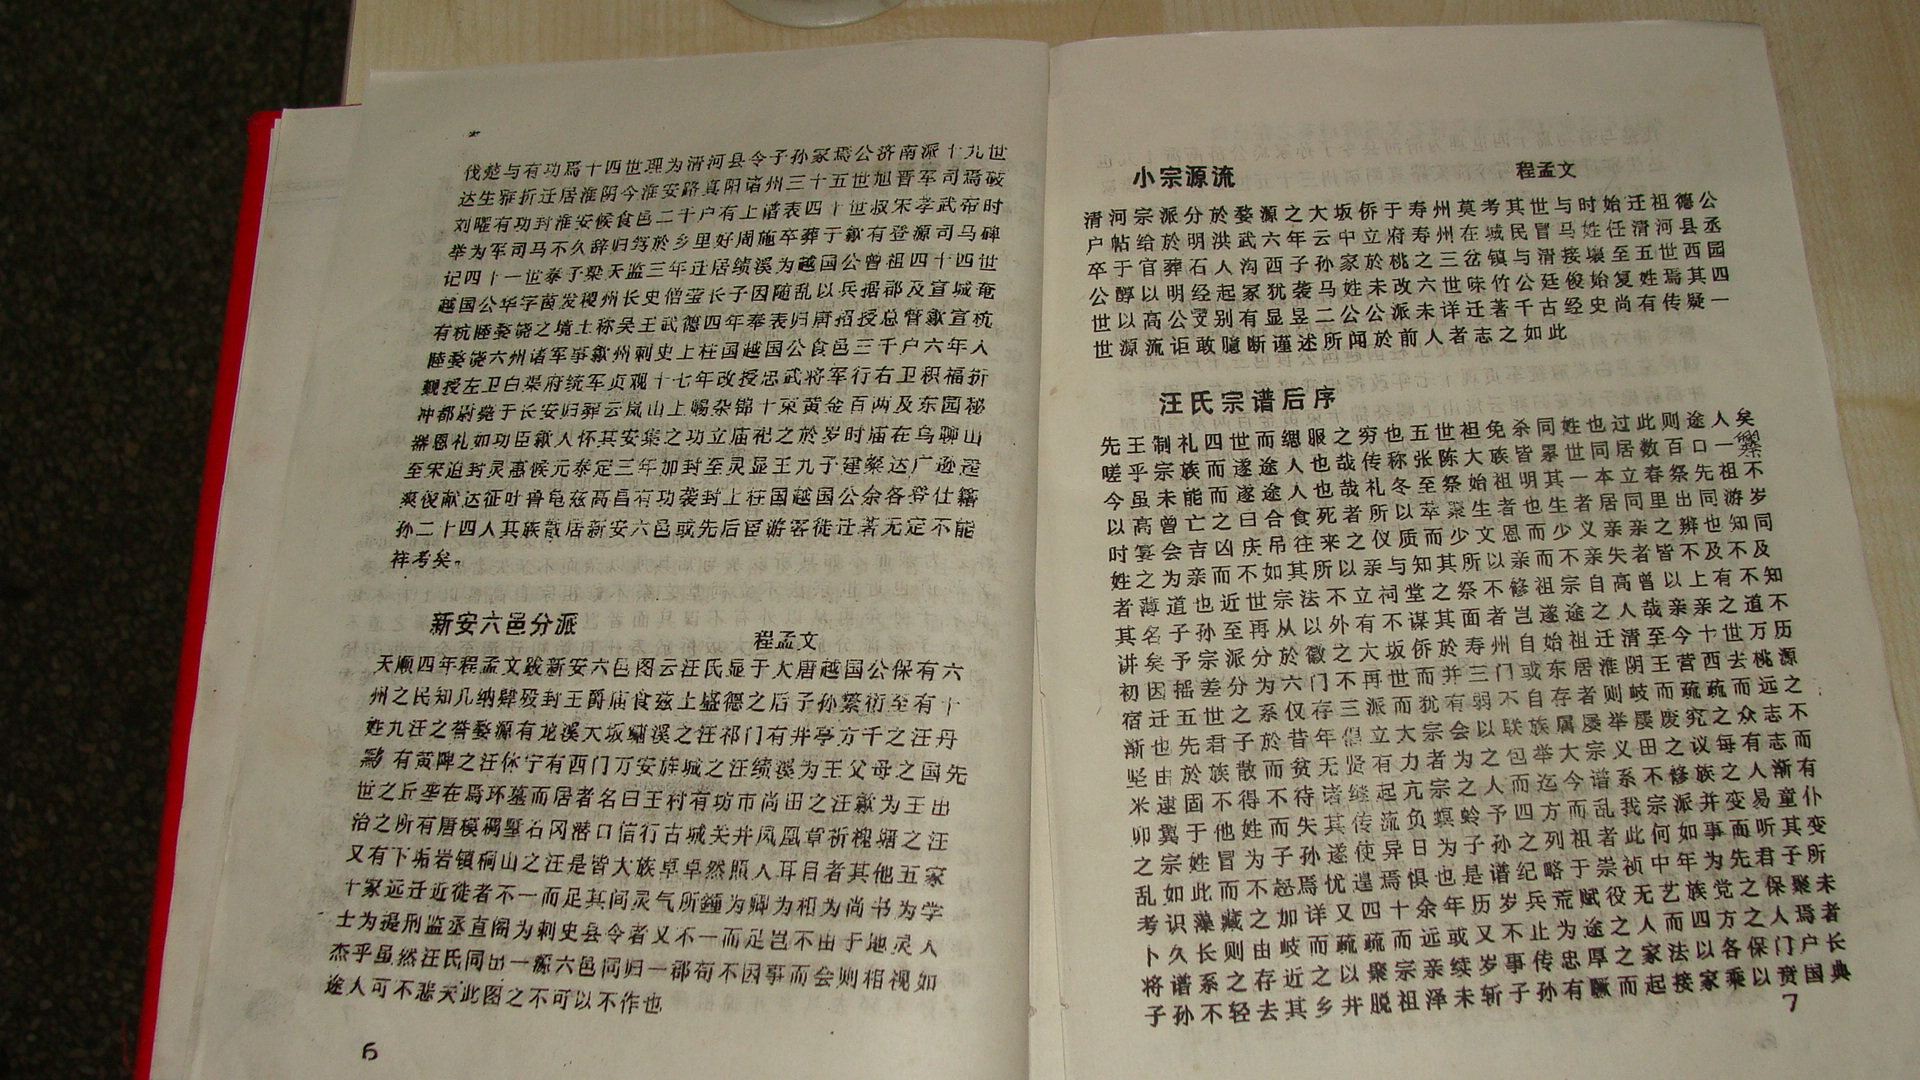 伐楚与有功焉十四世理为清河县令子孙冢焉公济南派十九世
达生雅折迁居淮阴今淮安路真阳诸州三十五世旭晋军司焉破
刘曜有功封淮安候食邑二千户有上谱表四十世叔宋孝武帝时
举为军司马不久辞归笃於乡里好周施卒葬于歙有登源司马碑
记四十一世泰子梁天监三年迁居绩溪为越国公曾祖四十四世
越国公华字茵发稷州长史僧莹长子因随乱以兵据郡及宣城奄
有杭睦婺饶之境土称吴王武德四年奉表归唐招授总督歙宣杭
睦婺饶六州诸军事歙州刺史上柱国越国公食邑三千户六年入
觐授左卫白渠府统军贞观十七年改授忠武将军行右卫积福折
冲都尉薨于长安归葬云岚山上赐杂锦十束黄金百两及东园秘
器恩礼如功臣歙人怀其安集之功立庙祀之於岁时庙在乌聊山
至宋追封灵惠候元泰定三年加封至灵显王九子建璨达广逊逵
爽俊献达征叶鲁龟兹高昌有功袭封上柱国越国公余各登仕籍
孙二十四人其族散居新安六邑或先后宦游客徙迁著无定不能
祥考矣。
新安六邑分派
程孟文
天顺四年程孟文跋新安六邑图云汪氏显于大唐越国公保有六
州之民知几纳肆殁封王爵庙食兹土盛德之后子孙繁衍至有十
姓九汪之誉婺源有龙溪大坂溪之汪祁门有井亭方千之汪丹
黟有黄陴之汪休宁有西门万安旌城之汪绩溪为王父母之国先
世之丘垄在焉环墓而居者名曰王村有坊市尚田之汪歙为王出
治之所有唐模稠墅石冈潜口信行古城关井凤凰章祈槐塘之汪
又有下垢岩镇桐山之汪是皆大族卓卓然照人耳目者其他五家
十家远迁近徙者不一而足其间灵气所鍾为卿为相为尚书为学
士为提刑监丞直阁为刺史县令者又不一而足岂不由于地灵人
杰乎虽然汪氏同出一源六邑同归一郡苟不因事而会则相视如
途人可不悲夫此图之不可以不作也
6
小宗源流
程孟文
清河宗派分於婺源之大坂侨于寿州莫考其世与时始迁祖德公
户帖给於明洪武六年云中立府寿州在城民冒马姓任清河县丞
卒于官葬石人沟西子孙家於桃之三岔镇与滑接壤至五世西园
公醇以明经起冢犹袭马姓未改六世味竹公廷俊始复姓焉其四
世以高公别有显昱二公公派未详迁著千古经史尚有传疑一
世源流讵敢臆断谨述所闻於前人者志之如此
汪氏宗谱后序
先王制礼四世而缌服之穷也五世祖免杀同姓也过此则途人矣
嗟乎宗族而遂途人也哉传称张陈大族皆累世同居数百口一爨
今虽未能而遂途人也哉礼冬至祭始祖明其一本立春祭先祖不
以高曾亡之曰合食死者所以萃聚生者也生者居同里出同游岁
时宴会吉凶庆吊往来之仪质而少文恩而少义亲亲之辨也知同
姓之为亲而不如其所以亲与知其所以亲而不亲失者皆不及不及
者薄道也近世宗法不立祠堂之祭不修祖宗自高曾以上有不知
其名子孙至再从以外有不谋其面者岂遂途之人哉亲亲之道不
讲矣予宗派分於徽之大坂侨於寿州自始祖迁清至今十世万历
初因摇差分为六门不再世而并三门或东居淮阴王营西去桃源
宿迁五世之系仅存三派而犹有弱不自存者则岐而疏疏而远之
渐也先君子於昔年倡立大宗会以联族属屡举屡废究之众志不
坚由於族散而贫无贤有力者为之包举大宗义田之议每有志而
米速固不得不待诸继起亢宗之人而迄今谱系不修族之人渐有
卵翼于他姓而失其传流负螟蛉予四方而乱我宗派并变易童仆
之宗姓冒为子孙遂使异日为子孙之列祖者此何如事而听其变
乱如此而不惄焉忧遑焉惧也是谱纪略于崇祯中年为先君子所
考识藻藏之加详又四十余年历岁兵荒赋役无艺族党之保聚未
卜久长则由岐而疏疏而远或又不止为途之人而四方之人焉者
将谱系之存近之以聚宗亲续岁事传忠厚之家法以各保门户长
子孙不轻去其乡井脱祖泽未斩子孙有蹶而起接家乘以贲国典
7